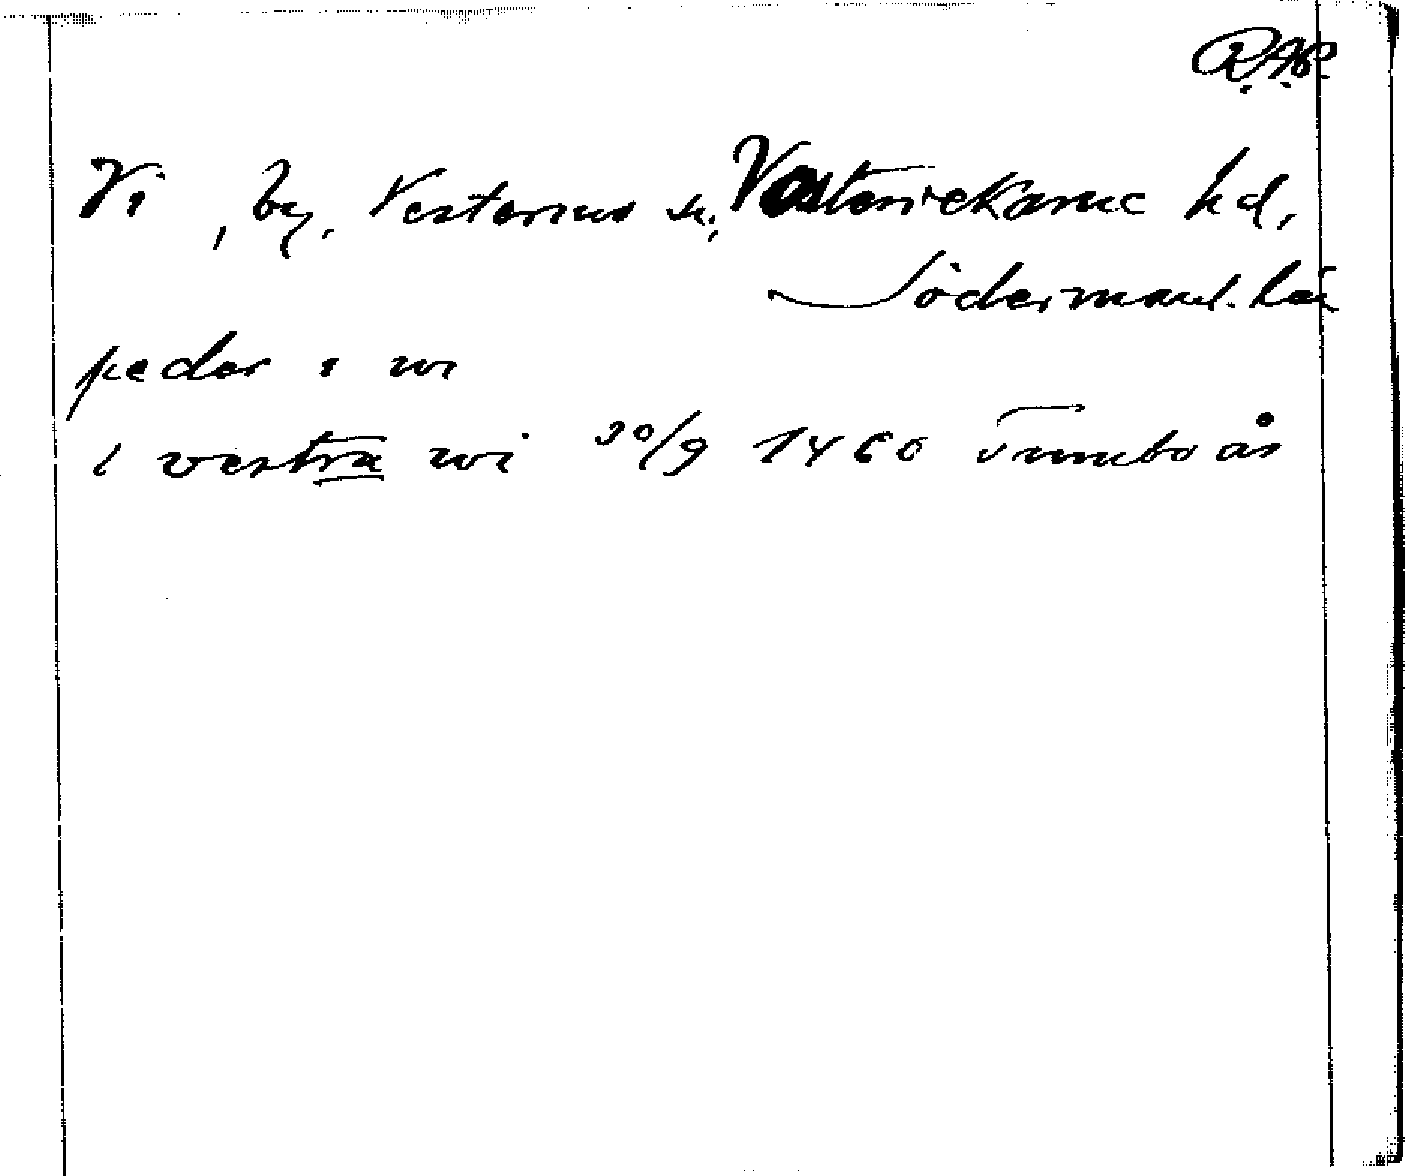 R.A.P.
Vi, by, Vestermo sn, Västerrekarne hd,
Södermanl. län
peder i wi
i vestra wi 30/9 1460 Tunnebo ås